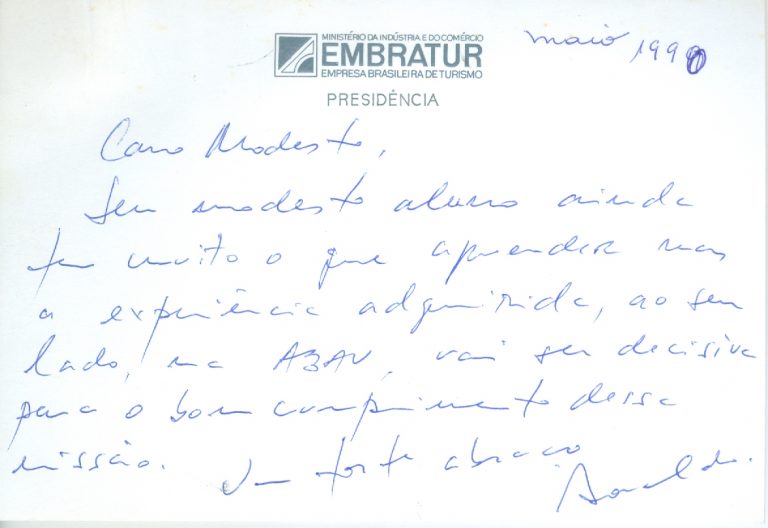 MINISTÉRIO DA INDÚSTRIA E DO COMÉRCIO
EMBRATUR
EMPRESA BRASILEIRA DE TURISMO
PRESIDÊNCIA
maio, 1990
Caro Modesto,
Seu modesto aluno ainda
tem muito o que aprender mas
a experiência adquirida, ao seu
lado, na ABAV, vai ser decisiva
para o bom cumprimento dessa
missão. Um forte abraço
Ronaldo.